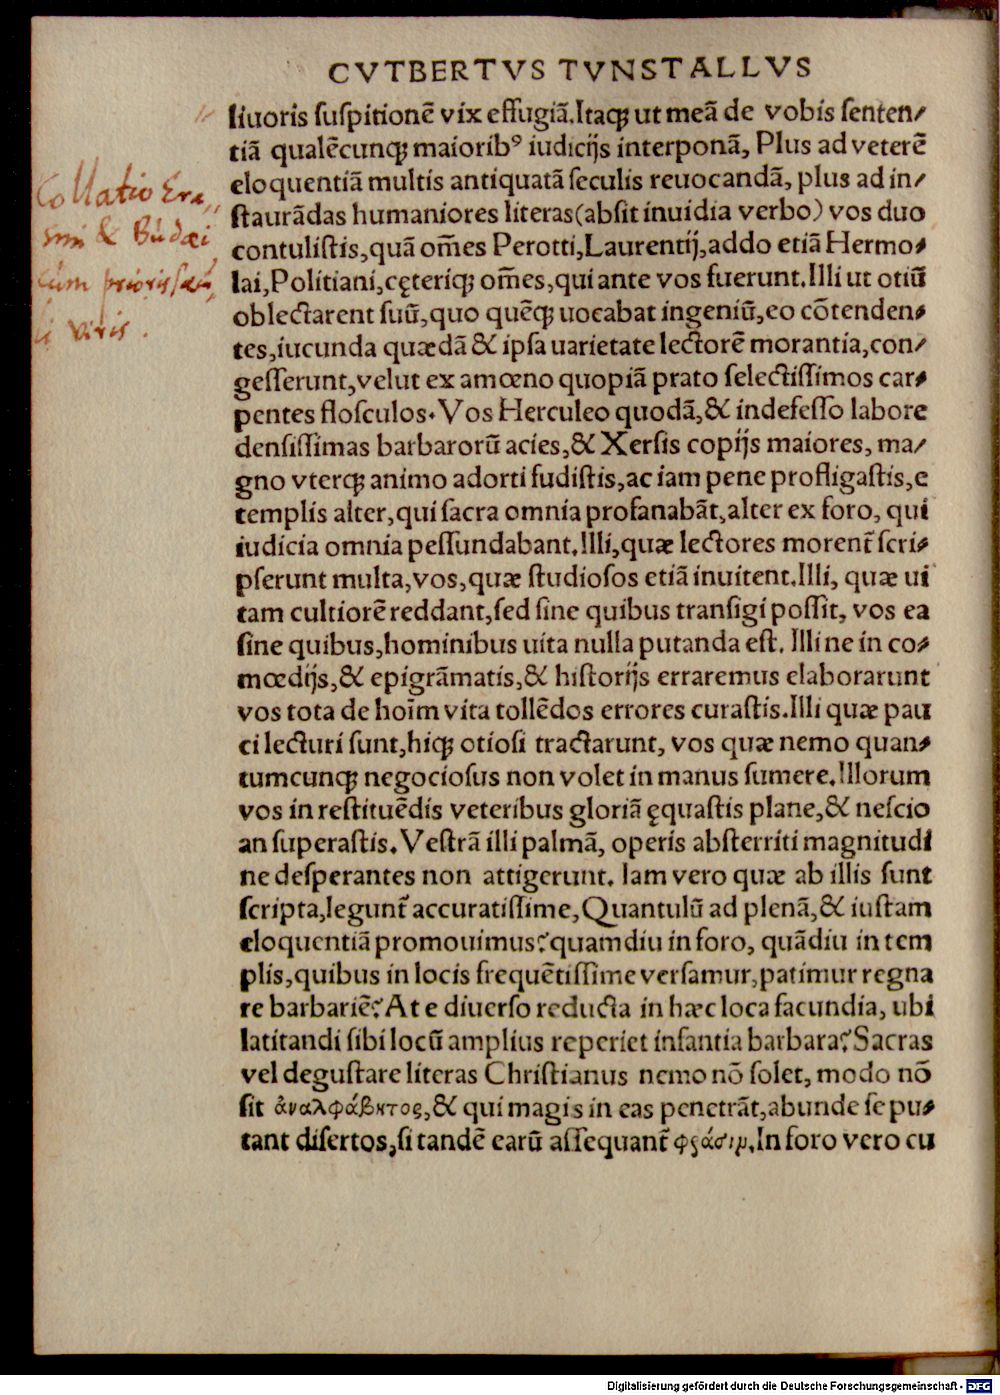 CVTBERTVS TVNSTALLVS
liuoris ſuſpitionē vix effugiā.Itaqꝫ ut meā de vobis ſenten/
tiā qualēcunqꝫ maioribꝰ iudicijs interponā, Plus ad veterē
eloquentiā multis antiquatā ſeculis reuocandā, plus ad in/
ſtaurādas humaniores literas(abſit inuidia verbo) vos duo
contuliſtis,quā om̄es Perotti,Laurentij,addo etiā Hermo/
lai,Politiani,cęteriqꝫ om̄es,qui ante vos fuerunt.Illi ut otiū
oblectarent ſuū,quo quēqꝫ uocabat ingeniū,eo cōtenden/
tes,iucunda quædā & ipſa uarietate lectorē morantia,con/
geſſerunt,velut ex amœno quopiā prato ſelectiſſimos car/
pentes floſculos.Vos Herculeo quodā,& indefeſſo labore
denſiſſimas barbarorū acies,& Xerſis copijs maiores, ma/
gno vterqꝫ animo adorti fudiſtis,ac iam pene profligaſtis,e
templis alter,qui ſacra omnia profanabāt,alter ex foro, qui
iudicia omnia peſſundabant.Illi,quæ lectores morent̄ ſcri/
pſerunt multa,vos,quæ ſtudioſos etiā inuitent.Illi, quæ ui
tam cultiorē reddant,ſed ſine quibus tranſigi poſſit, vos ea
ſine quibus,hominibus uita nulla putanda eſt. Illi ne in co/
mœdijs,& epigrāmatis,& hiſtorijs erraremus elaborarunt
vos tota de hoīm vita tollēdos errores curaſtis.Illi quæ pau
ci lecturi ſunt,hiqꝫ otioſi tractarunt, vos quæ nemo quan/
tumcunqꝫ negocioſus non volet in manus ſumere.Illorum
vos in reſtituēdis veteribus gloriā ęquaſtis plane,& neſcio
an ſuperaſtis.Veſtrā illi palmā, operis abſterriti magnitudi
ne deſperantes non attigerunt. Iam vero quæ ab illis ſunt
ſcripta,legunt̄ accuratiſſime,Quantulū ad plenā,& iuſtam
eloquentiā promouimus?quamdiu in foro, quādiu in tem
plis,quibus in locis frequētiſſime verſamur,patimur regna
re barbariē?At e diuerſo reducta in hæc loca facundia, ubi
latitandi ſibi locū amplius reperiet infantia barbara?Sacras
vel deguſtare literas Chriſtianus nemo nō ſolet, modo nō
ſit ἀναλφάβητος,& qui magis in eas penetrāt,abunde ſe pu/
tant diſertos,ſi tandē earū aſſequant̄ φράσιμ.In foro vero cu
Collatio Eras
mi & Budæi
cum prioris sæcu
li viris.
Digitalisierung gefördert durch die Deutsche Forschungsgemeinschaft - DFG